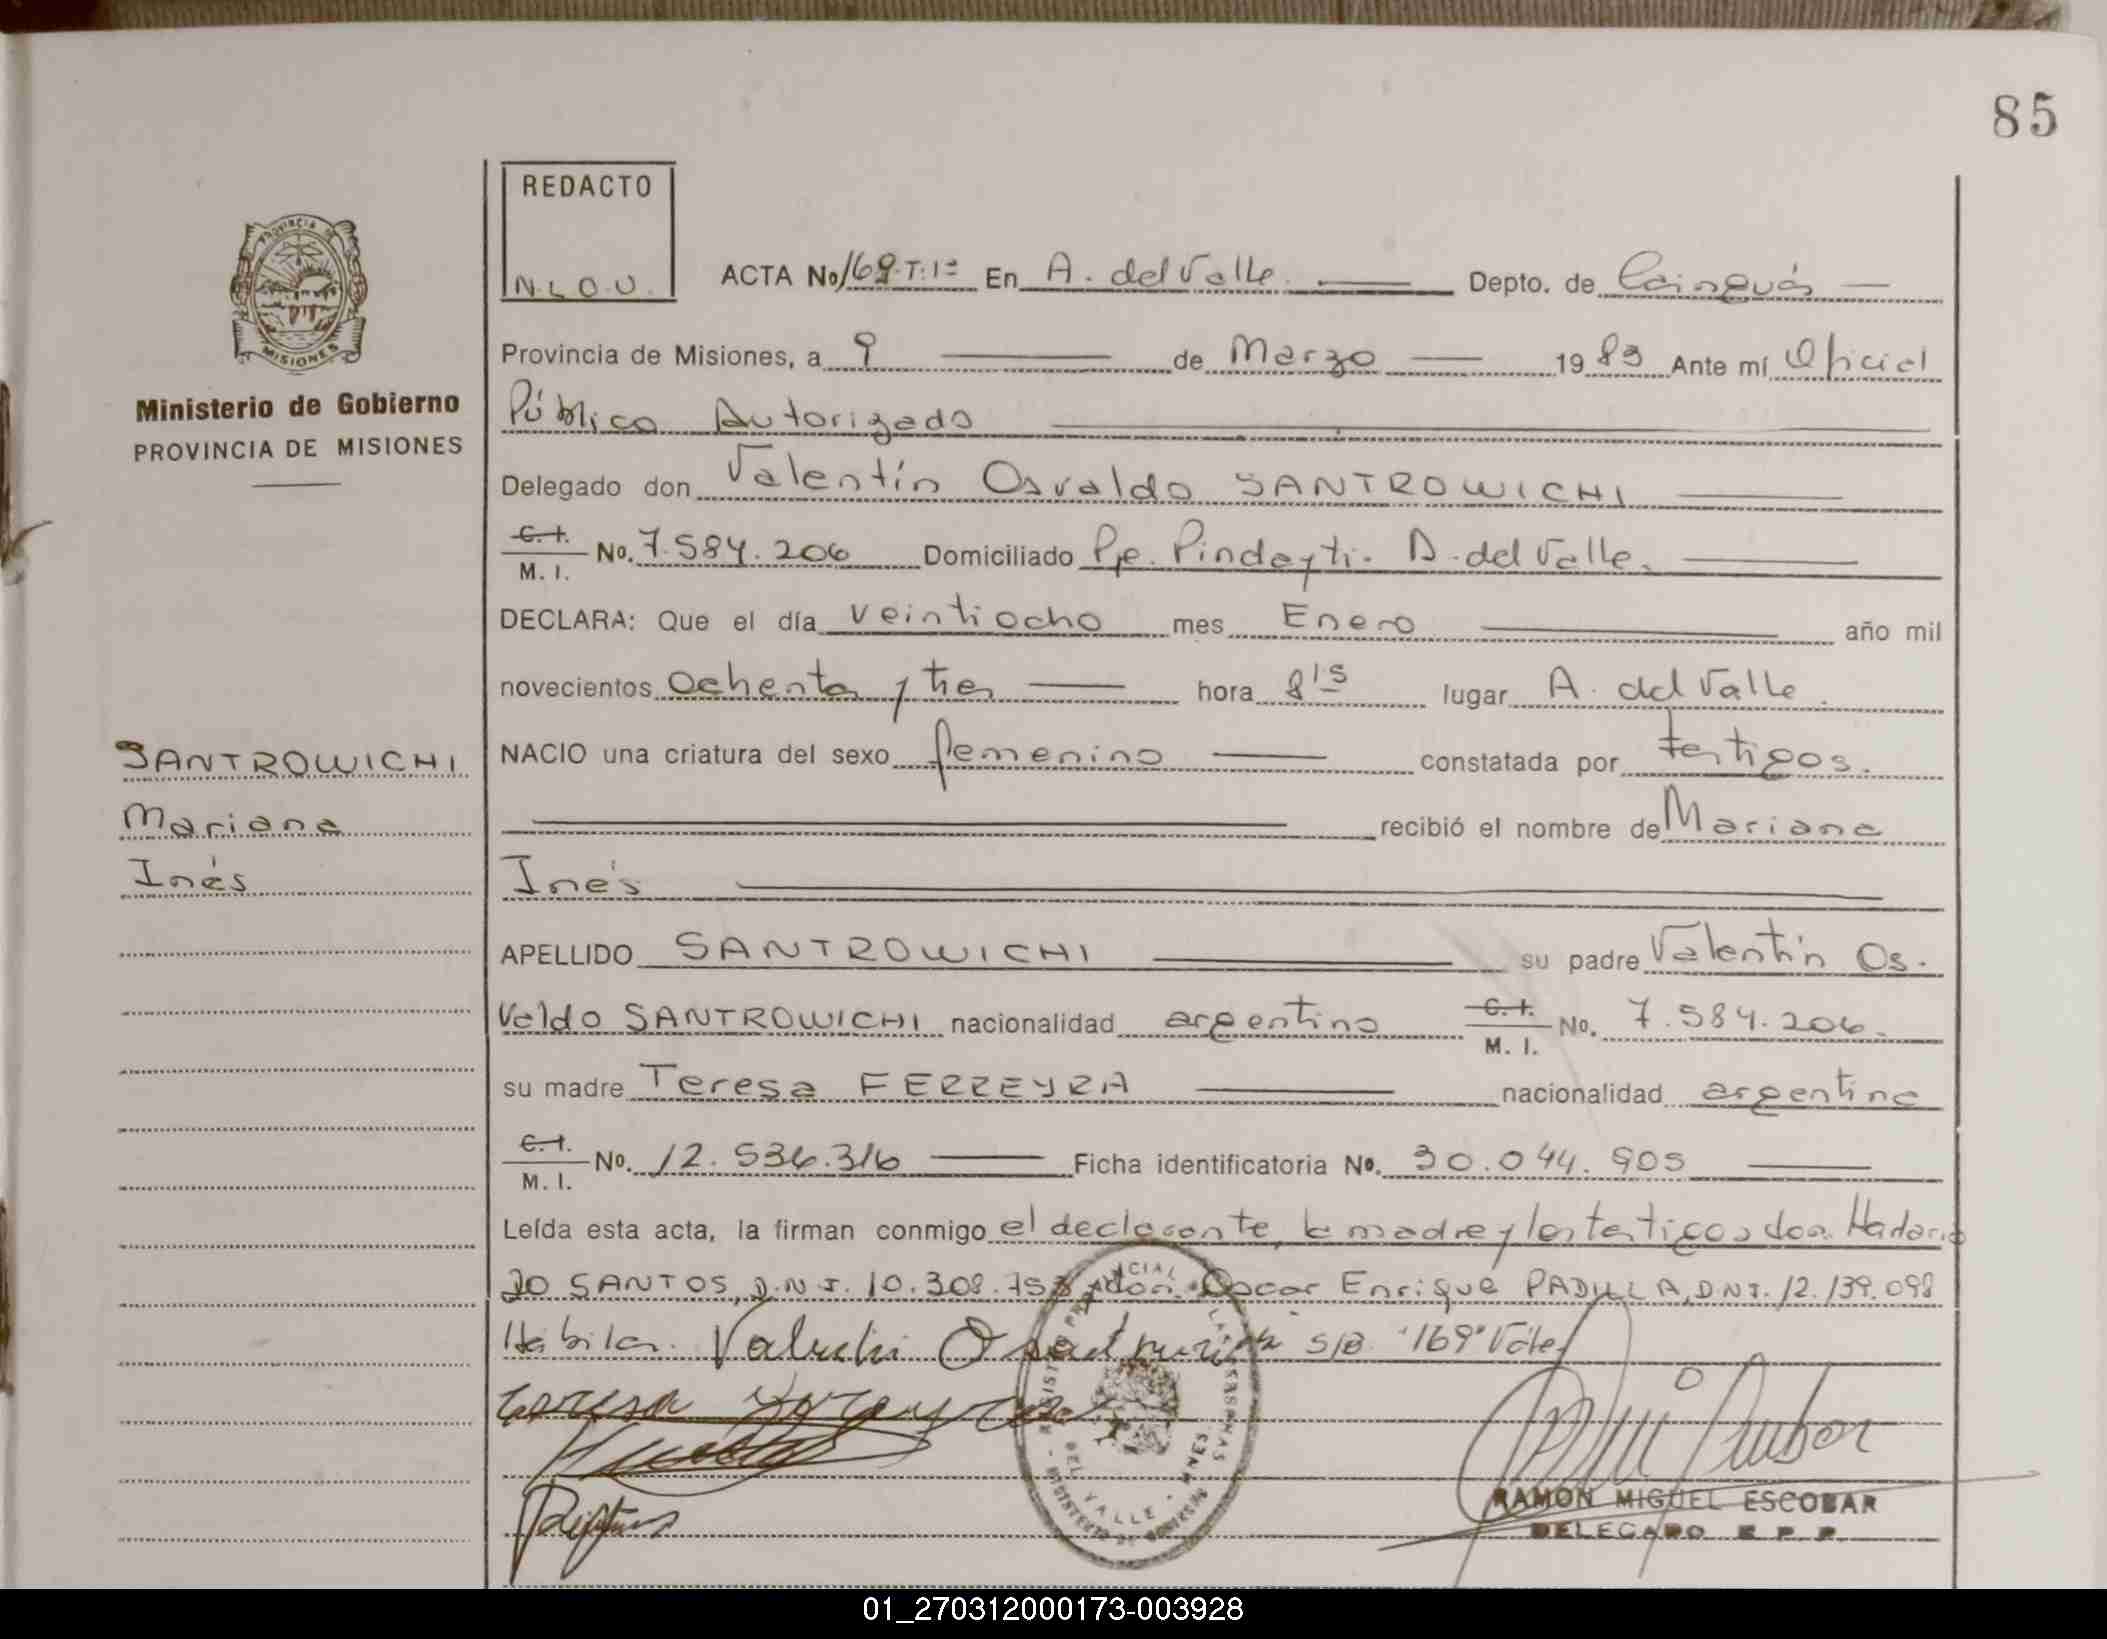 85
REDACTO
N.L.O.U.
ACTA No 169.T.1º En A. del Valle. Depto. de Cainguás
Provincia de Misiones, a 9 de Marzo 1983 Ante mí Oficial
Público Autorizado
PROVINCIA DE
MISIONES
Ministerio de Gobierno
PROVINCIA DE MISIONES
Delegado don Valentín Osvaldo SANTROWICHI
C. I.
M. I. No. 7.584.206 Domiciliado Pje. Pindayti. A. del Valle.
DECLARA: Que el día veintiocho mes Enero año mil
novecientos ochenta y tres hora 8 15 lugar A. del Valle.
SANTROWICHI
Mariana
Inés
NACIO una criatura del sexo femenino constatada por testigos.
recibió el nombre de Mariana
Inés
APELLIDO SANTROWICHI su padre Valentín Os-
valdo SANTROWICHI nacionalidad argentino C. I.
M. I. No. 7.584.206.
su madre Teresa FERREYRA nacionalidad argentina
C. I.
M. I. No. 12.536.316 Ficha identificatoria No. 30.044.905
Leída esta acta, la firman conmigo el declarante, la madre y los testigos don
DO SANTOS, D.N.I. 10.308.753 y don Oscar Enrique PADILLA, D.N.I. 12.139.098
Hábiles. S/B "169" Vale
RAMON MIGUEL ESCOBAR
DELEGADO R. P. P.
DEL VALLE - MNES.
01_270312000173-003928